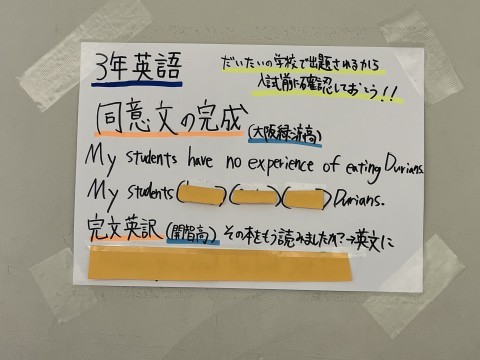 3年英語
だいたいの学校で出題されるから
入試前に確認しておこう!!
同意文の完成(大阪緑涼高)
My students have no experience of eating Durians.
My students( )( )( )Durians.
完文英訳(開智高)その本をもう読みましたか?→英文に